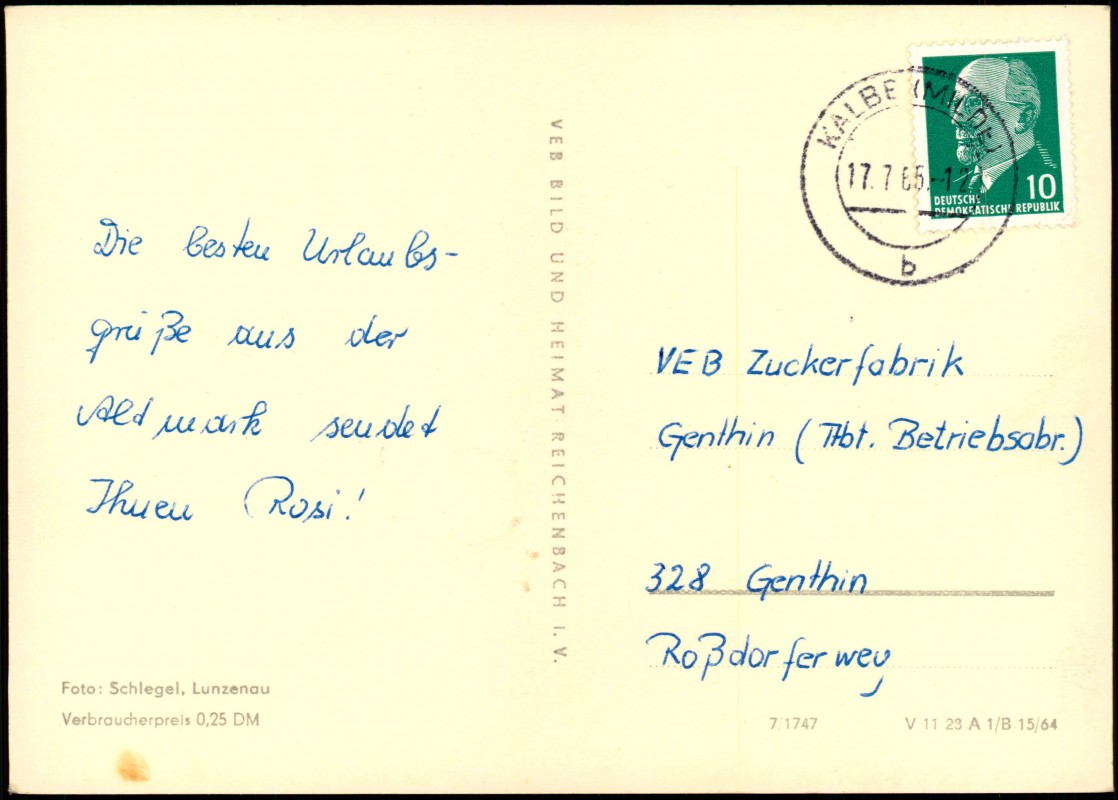 Die besten Urlaubs-
grüße aus der
Altmark sendet
Ihnen Rosi!
Foto: Schlegel, Lunzenau
Verbraucherpreis 0,25 DM
VEB BILD UND HEIMAT REICHENBACH i. V.
KALBE (MILDE)
17. 7. 65.-12
b
10
DEUTSCHE
DEMOKRATISCHE REPUBLIK
VEB Zuckerfabrik
Genthin (Abt. Betriebsabr.)
328 Genthin
Roßdorferweg
7/1747
V 11 28 A 1/B 15/64